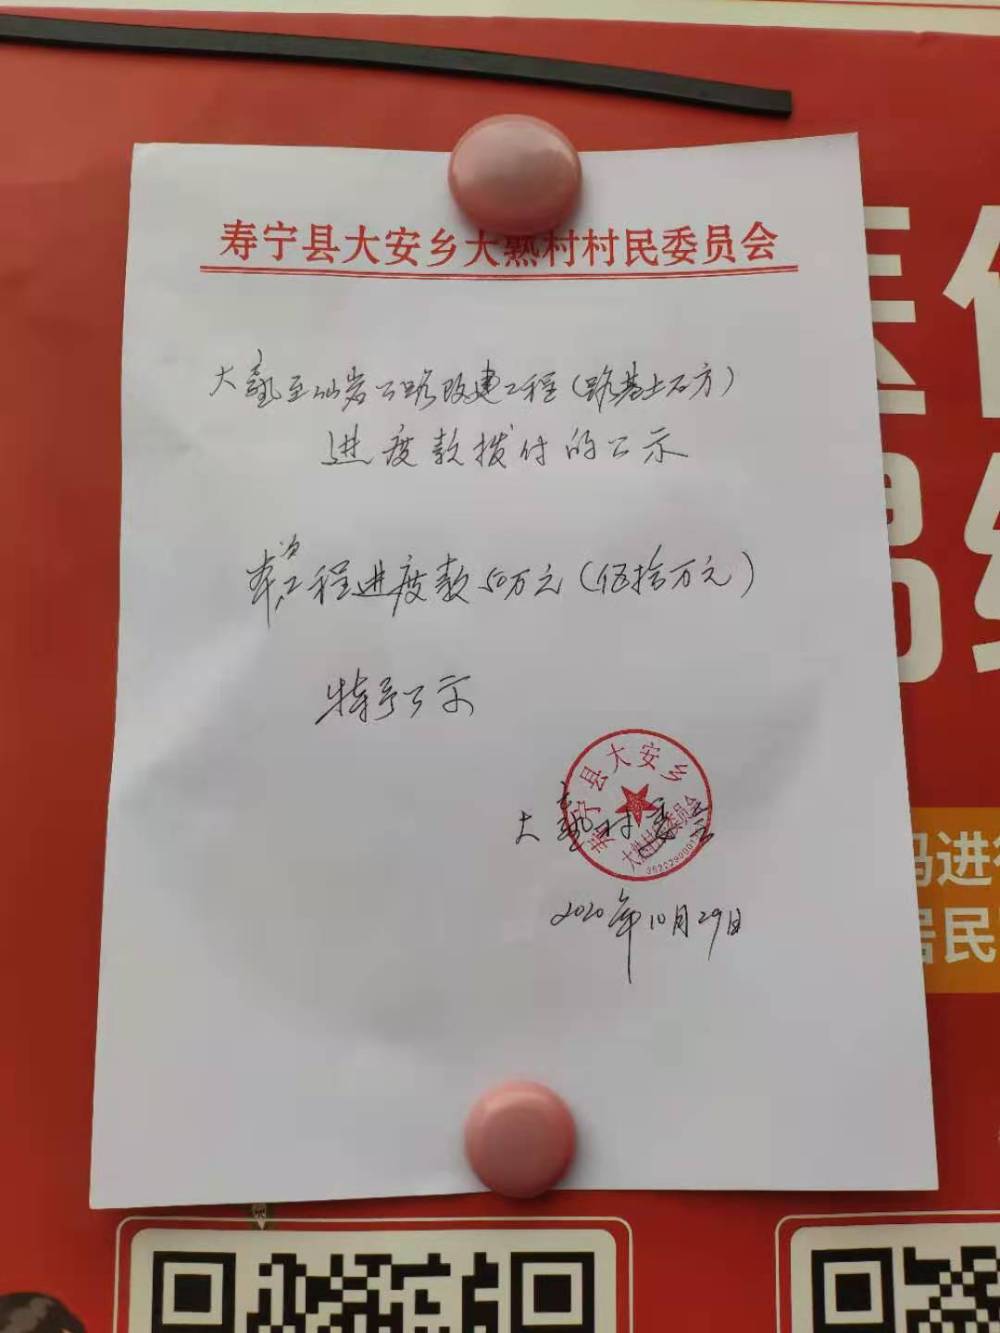 寿宁县大安乡大熟村村民委员会
大熟至仙岩公路改建工程（路基土石方）
进度款拨付的公示
本次工程进度款50万元（伍拾万元）
特予公示
寿宁县大安乡
大熟村村民委员会
大熟村委会
2020年10月29日
码进行
居民